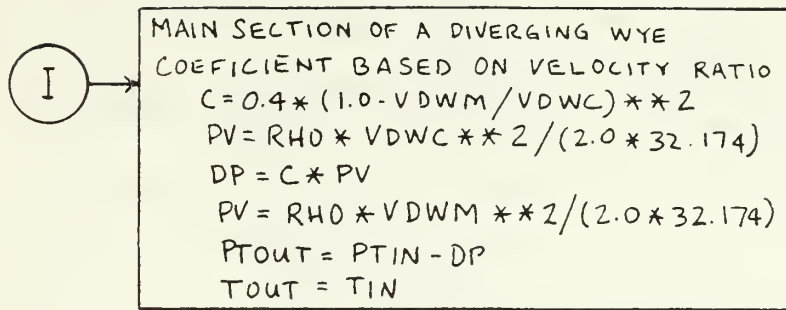 I
MAIN SECTION OF A DIVERGING WYE
COEFICIENT BASED ON VELOCITY RATIO
C = 0.4 * (1.0 - VDWM / VDWC) ** 2
PV = RHO * VDWC ** 2 / (2.0 * 32.174)
DP = C * PV
PV = RHO * VDWM ** 2 / (2.0 * 32.174)
PTOUT = PTIN - DP
TOUT = TIN